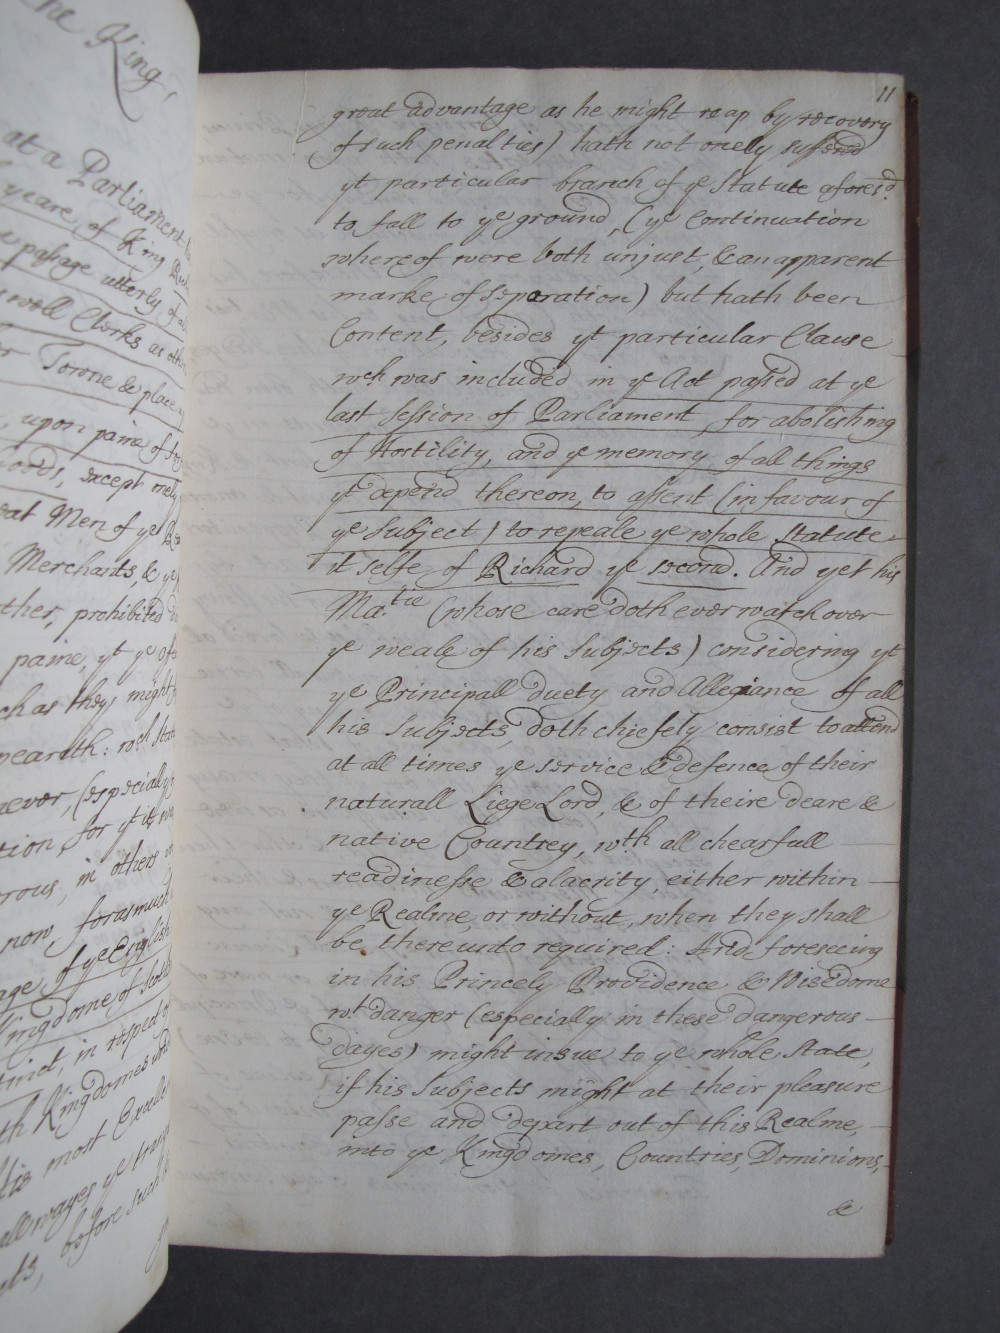 the King,
at a Parliament
yeare of King
passage utterly of
well Clerks as
Towne & place
upon paine of
Lords, except onely
Men of ye
Merchants, & ye
ther, prohibited
paine, yt ye
ch as they might
peareth: wch
ever, (especially
tion, for yt it
rous, in others
now, forasmuch
age of ye English
Kingdome of
in respect of
th Kingdomes
His most
allwayes ye
before such
11
great advantage as he might reap by recovery
of such penalties) hath not onely suffered
yt particular branch of ye Statute aforesd.
to fall to ye ground, (ye Continuation
whereof were both unjust, & an apparent
marke of Separation) but hath been
Content, besides yt particular Clause
wch was included in ye Act passed at ye
last Session of Parliament, for abolishing
of Hostility, and ye memory of all things
yt depend thereon, to assent (in favour of
ye Subject) to repeale ye whole Statute
it selfe of Richard ye second. And yet his
Ma.tie (whose care doth ever watch over
ye weale of his Subjects) considering yt
ye Principall duety and Allegiance of all
his Subjects, doth chiefely consist to attend
at all times ye service & defence of their
naturall Liege Lord, & of theire deare &
native Countrey, wth all chearfull
readinesse & alacrity, either within
ye Realme, or without, when they shall
be thereunto required: And foreseeing
in his Princely Providence & Wisedome
wt danger (especially in these dangerous
dayes) might insue to ye whole State,
if his Subjects might at their pleasure
passe and depart out of this Realme,
into ye Kingdomes, Countries, Dominions,
&